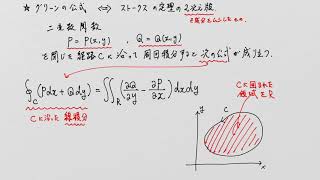 ★ グリーンの公式 ⇔ ストークスの定理の2次元版
を成分としたもの
二変数関数
P = P(x,y) , Q = Q(x,y)
を閉じた経路Cに沿って周回積分すると次の公式が成り立つ.
∮_C (Pdx + Qdy) = ∬_R (∂Q/∂y - ∂P/∂x) dxdy
Cに沿った線積分
Cに囲まれた
領域をR
y
C
x